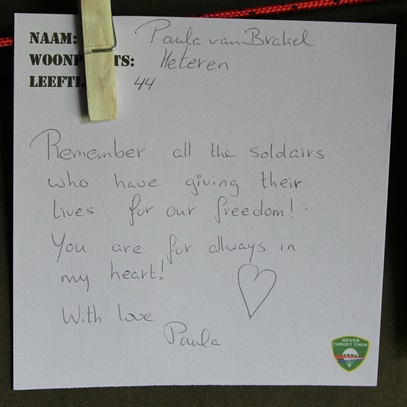 NAAM: Paula van Brakel
Heteren
44
Remember all the soldairs
who have giving their
lives for our freedom!
You are for allways in
my heart!
With love
Paula
NEVER
FORGET THEM